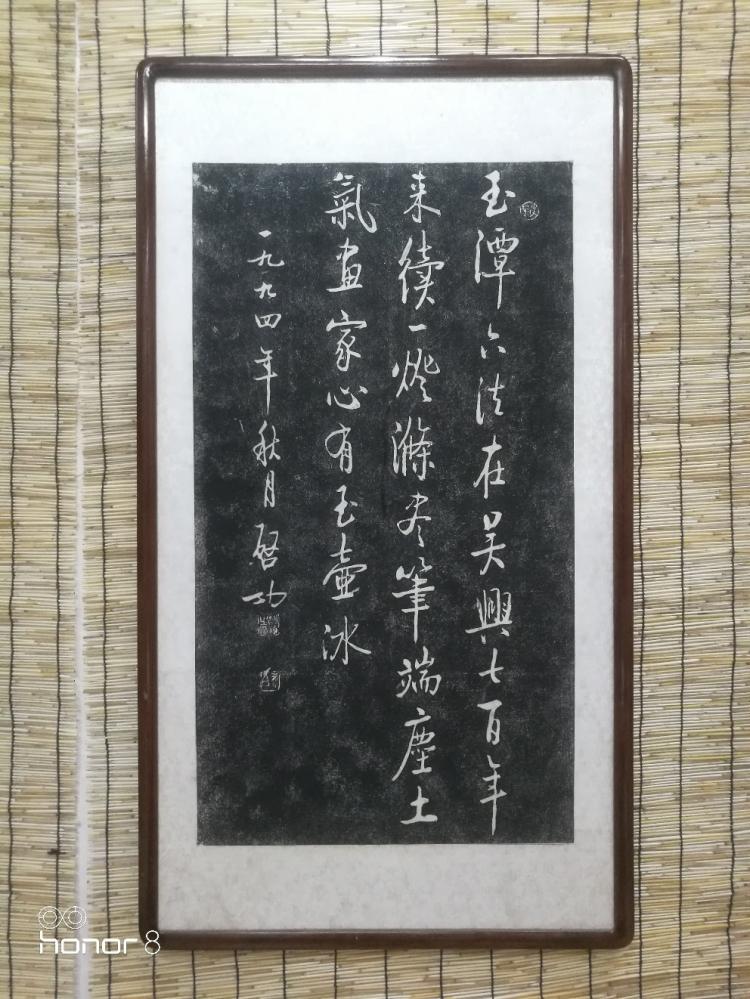 玉潭六法在吴興七百年
来續一燈滌尽筆端塵土
氣画家心有玉壶冰
一九九四年秋月啓功
honor 8